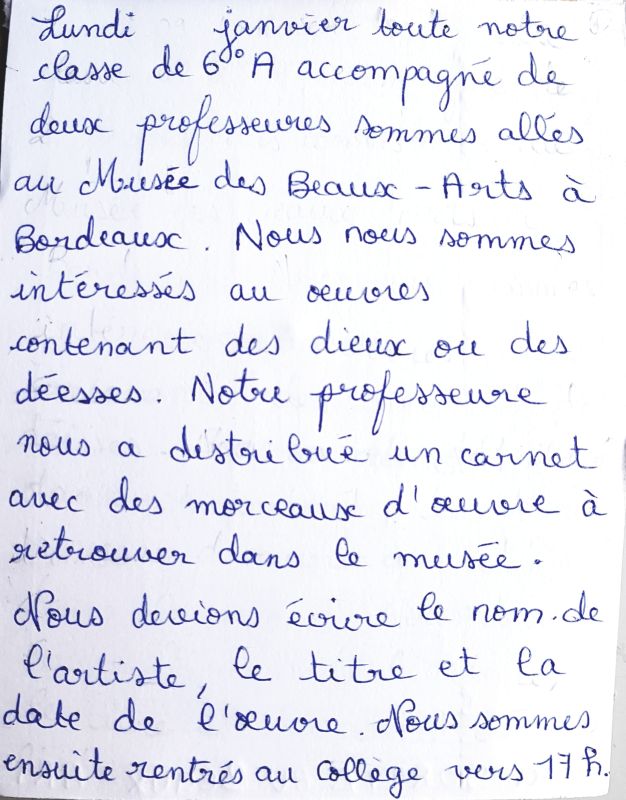 Lundi janvier toute notre
classe de 6° A accompagné de
deux professeures sommes allés
au Musée des Beaux-Arts à
Bordeaux. Nous nous sommes
intéressés au œuvres
contenant des dieux ou des
déesses. Notre professeure
nous a distribué un carnet
avec des morceaux d'œuvre à
retrouver dans le musée.
Nous devions écrire le nom de
l'artiste, le titre et la
date de l'œuvre. Nous sommes
ensuite rentrés au collège vers 17 h.